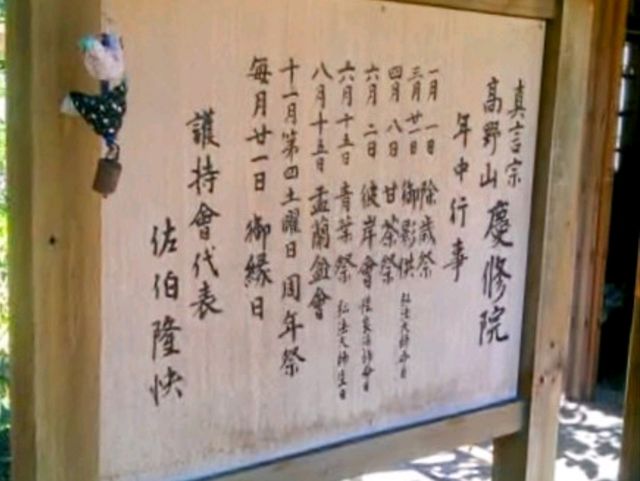 真言宗
高野山 慶修院
年中行事
一月一日 除歳祭
三月廿一日 御影供 弘法大師命日
四月八日 甘茶祭
六月二日 彼岸會 命日
六月十五日 青葉祭 弘法大師生日
八月十五日 盂蘭盆會
十一月第四土曜日 周年祭
毎月廿一日 御縁日
護持會代表
佐伯隆快